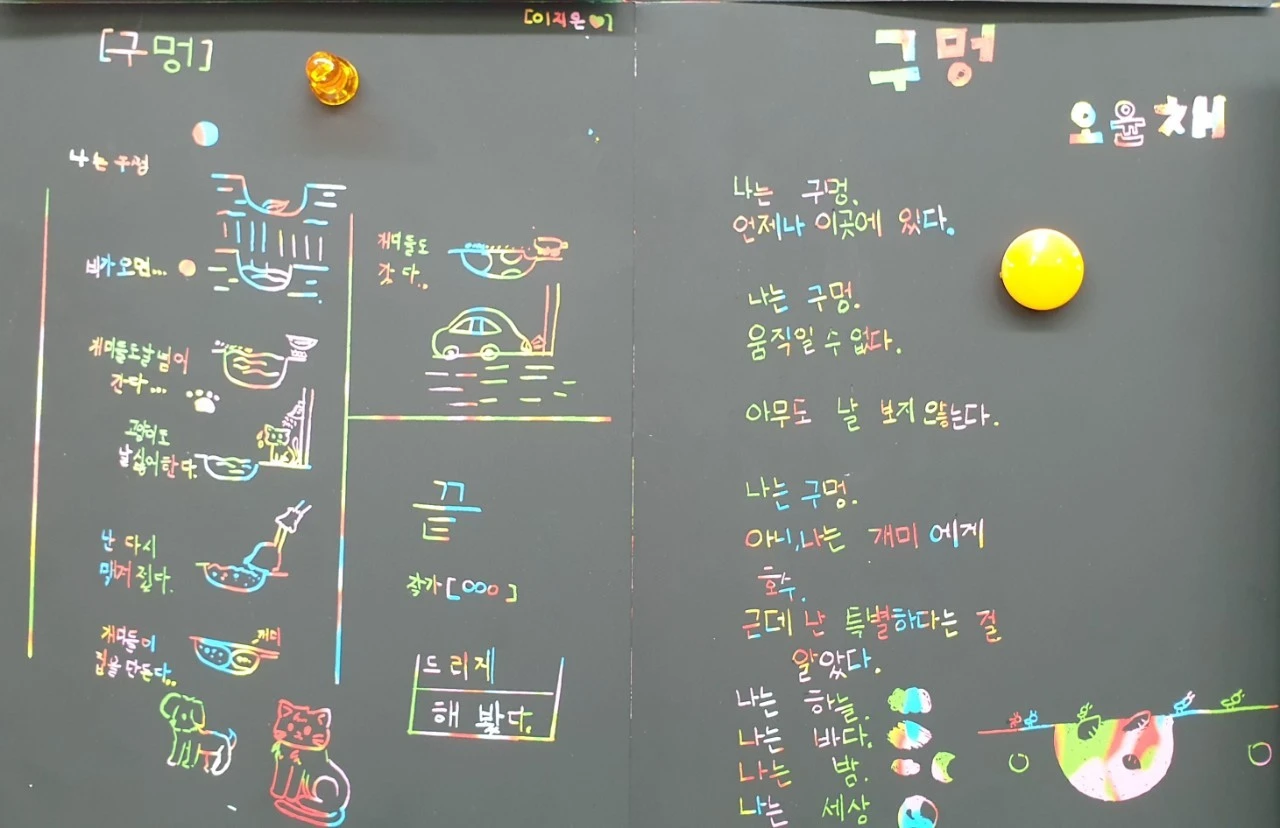 [이지은♥]
[구멍]
나는 구멍
비가 오면...
개미들도 날 넘어
간다...
고양이도
날 싫어한다.
난 다시
맺혀진다.
개미들이
집을 만든다..
개미
개미들도
갔다..
끝
작가[ooo]
드리게
해 봤다.
구멍
오율채
나는 구멍.
언제나 이곳에 있다.
나는 구멍.
움직일 수 없다.
아무도 날 보지 않는다.
나는 구멍.
아니, 나는 개미에게
호수.
근데 난 특별하다는 걸
알았다.
나는 하늘.
나는 바다.
나는 밤.
나는 세상